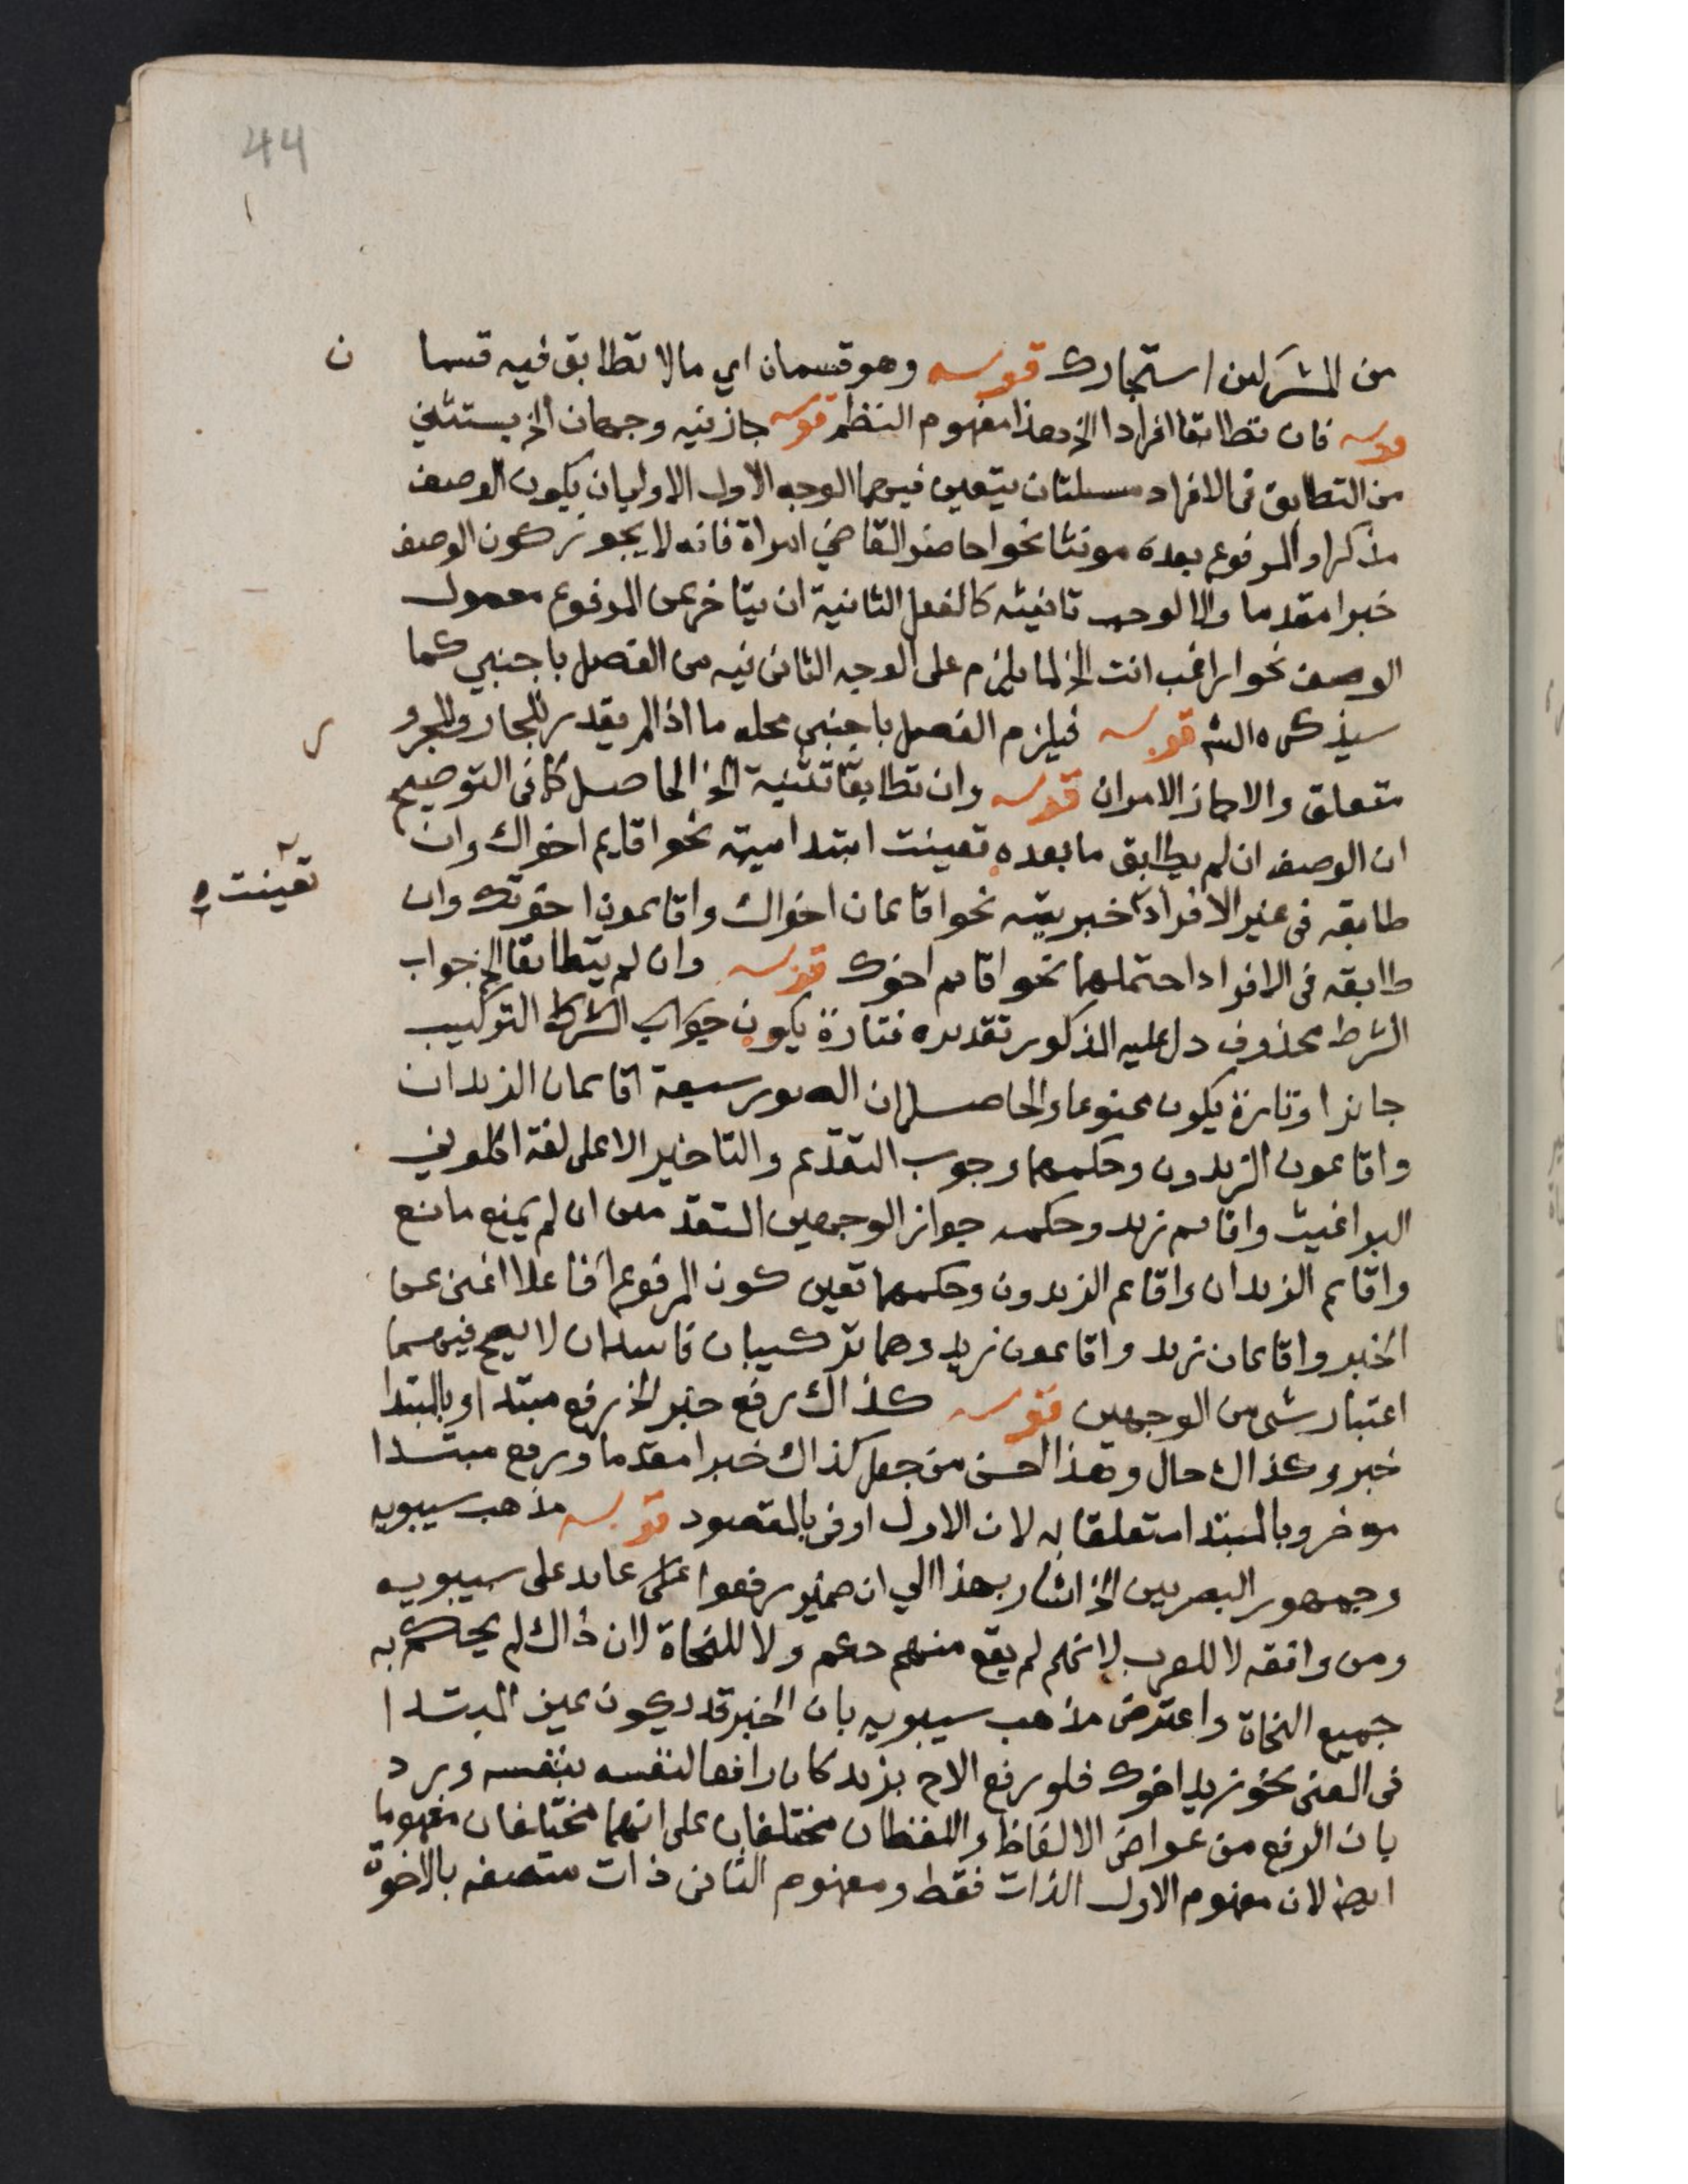 44
من المشركين استجارك قوله وهو قسمان اي مالا تطابق فيه قسما ن
قوله فان تطابقا افرادا الخ هذا مفهوم النظم قوله جاز فيه وجهان الخ يستثني
من التطابق في الافراد مسئلتان يتعين فيهما الوجه الاول الاولي ان يكون الوصف
مذكرا والمرفوع بعده مونثا نحو احاضر القاضي امراة فانه لا يجوز كون الوصف
خبرا مقدما والا لوجب تانيثه كالفعل الثانية ان يتاخر عن المرفوع معمول
الوصف نحو اراغب انت الخ لما يلزم على الوجه الثاني فيه من الفصل باجنبي كما
سيذكره الشم قوله فيلزم الفصل باجنبي محله ما اذا لم يقدر للجار والمجرو ر
متعلق والا جاز الامران قوله وان تطابقا تثنية الخ الحاصل كما في التوضيح
ان الوصف ان لم يطابق ما بعده تعينت ابتداميته نحو اقايم اخواك وان
طابقه في غير الافراد خبريته نحو اقايمان اخواك واقايمون اخوتك وان
تعينت
طابقه في الافراد احتملهما نحو اقايم اخوك قوله وان لم يتطابقا الخ جواب
الشرط محذوف دل عليه المذكور تقديره فتارة يكون جواب الشرط التركيب
جايزا وتارة يكون ممنوعا والحاصل ان الصور سبعة اقايمان الزيدان
واقايمون الزيدون وحكمهما وجوب التقديم والتاخير الا على لغة اكلوني
البراغيث واقايم زيد وحكمه جواز الوجهين المتقدمين ان لم يمنع مانع
واقايم الزيدان واقايم الزيدون وحكمهما تعين كون المرفوع فاعلا اغنى عن
الخبر واقايمان زيد واقايمون زيد وهما تركيبان فاسدان لا يصح فيهما
اعتبار شي من الوجهين قوله كذاك رفع خبر الخ رفع مبتدا وبالمبتدا
خبر وكذاك حال وهذا احسن من جعل كذاك خبرا مقدما ورفع مبتدا
موخر وبالمبتدا متعلقا به لان الاول اوفى بالمقصود قوله مذهب سيبويه
وجمهور البصريين الخ اشار بهذا الي ان ضمير رفعوا عايد على سيبويه
ومن وافقه لا للعرب لانهم لم يقع منهم حكم ولا للنحاة لان ذاك لم يحكم به
جميع النحاة واعترض مذهب سيبويه بان الخبر قد يكون عين المبتدا
في المعنى نحو زيد اخوك فلو رفع الاخ بزيد كان رافعا لنفسه بنفسه ويرد
بان الرفع من عوارض الالفاظ واللفظان مختلفان على انهما مختلفان مفهوما
ايضا لان مفهوم الاول الذات فقط ومفهوم الثاني ذات متصفه بالاخوة